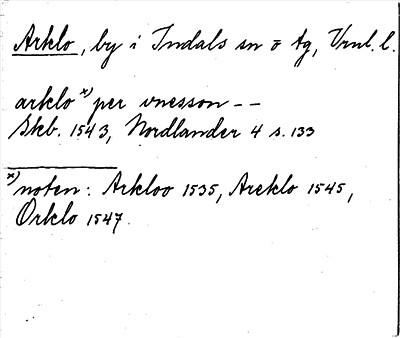 Arklo, by i Indals sn o tg, Vrnl. l.
arklo x) per vnesson - -
Skb. 1543, Nordlander 4 s. 133
x) noten: Arkloo 1535, Areklo 1545,
Orklo 1547.